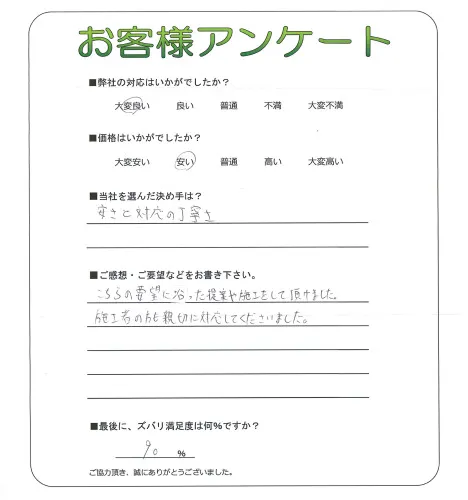 お客様アンケート
■弊社の対応はいかがでしたか？
大変良い 良い 普通 不満 大変不満
■価格はいかがでしたか？
大変安い 安い 普通 高い 大変高い
■当社を選んだ決め手は？
安さと対応の丁寧さ
■ご感想・ご要望などをお書き下さい。
こちらの要望に沿った提案や施工をして頂けました。
施工者の方も親切に対応してくださいました。
■最後に、ズバリ満足度は何%ですか？
90 %
ご協力頂き、誠にありがとうございました。